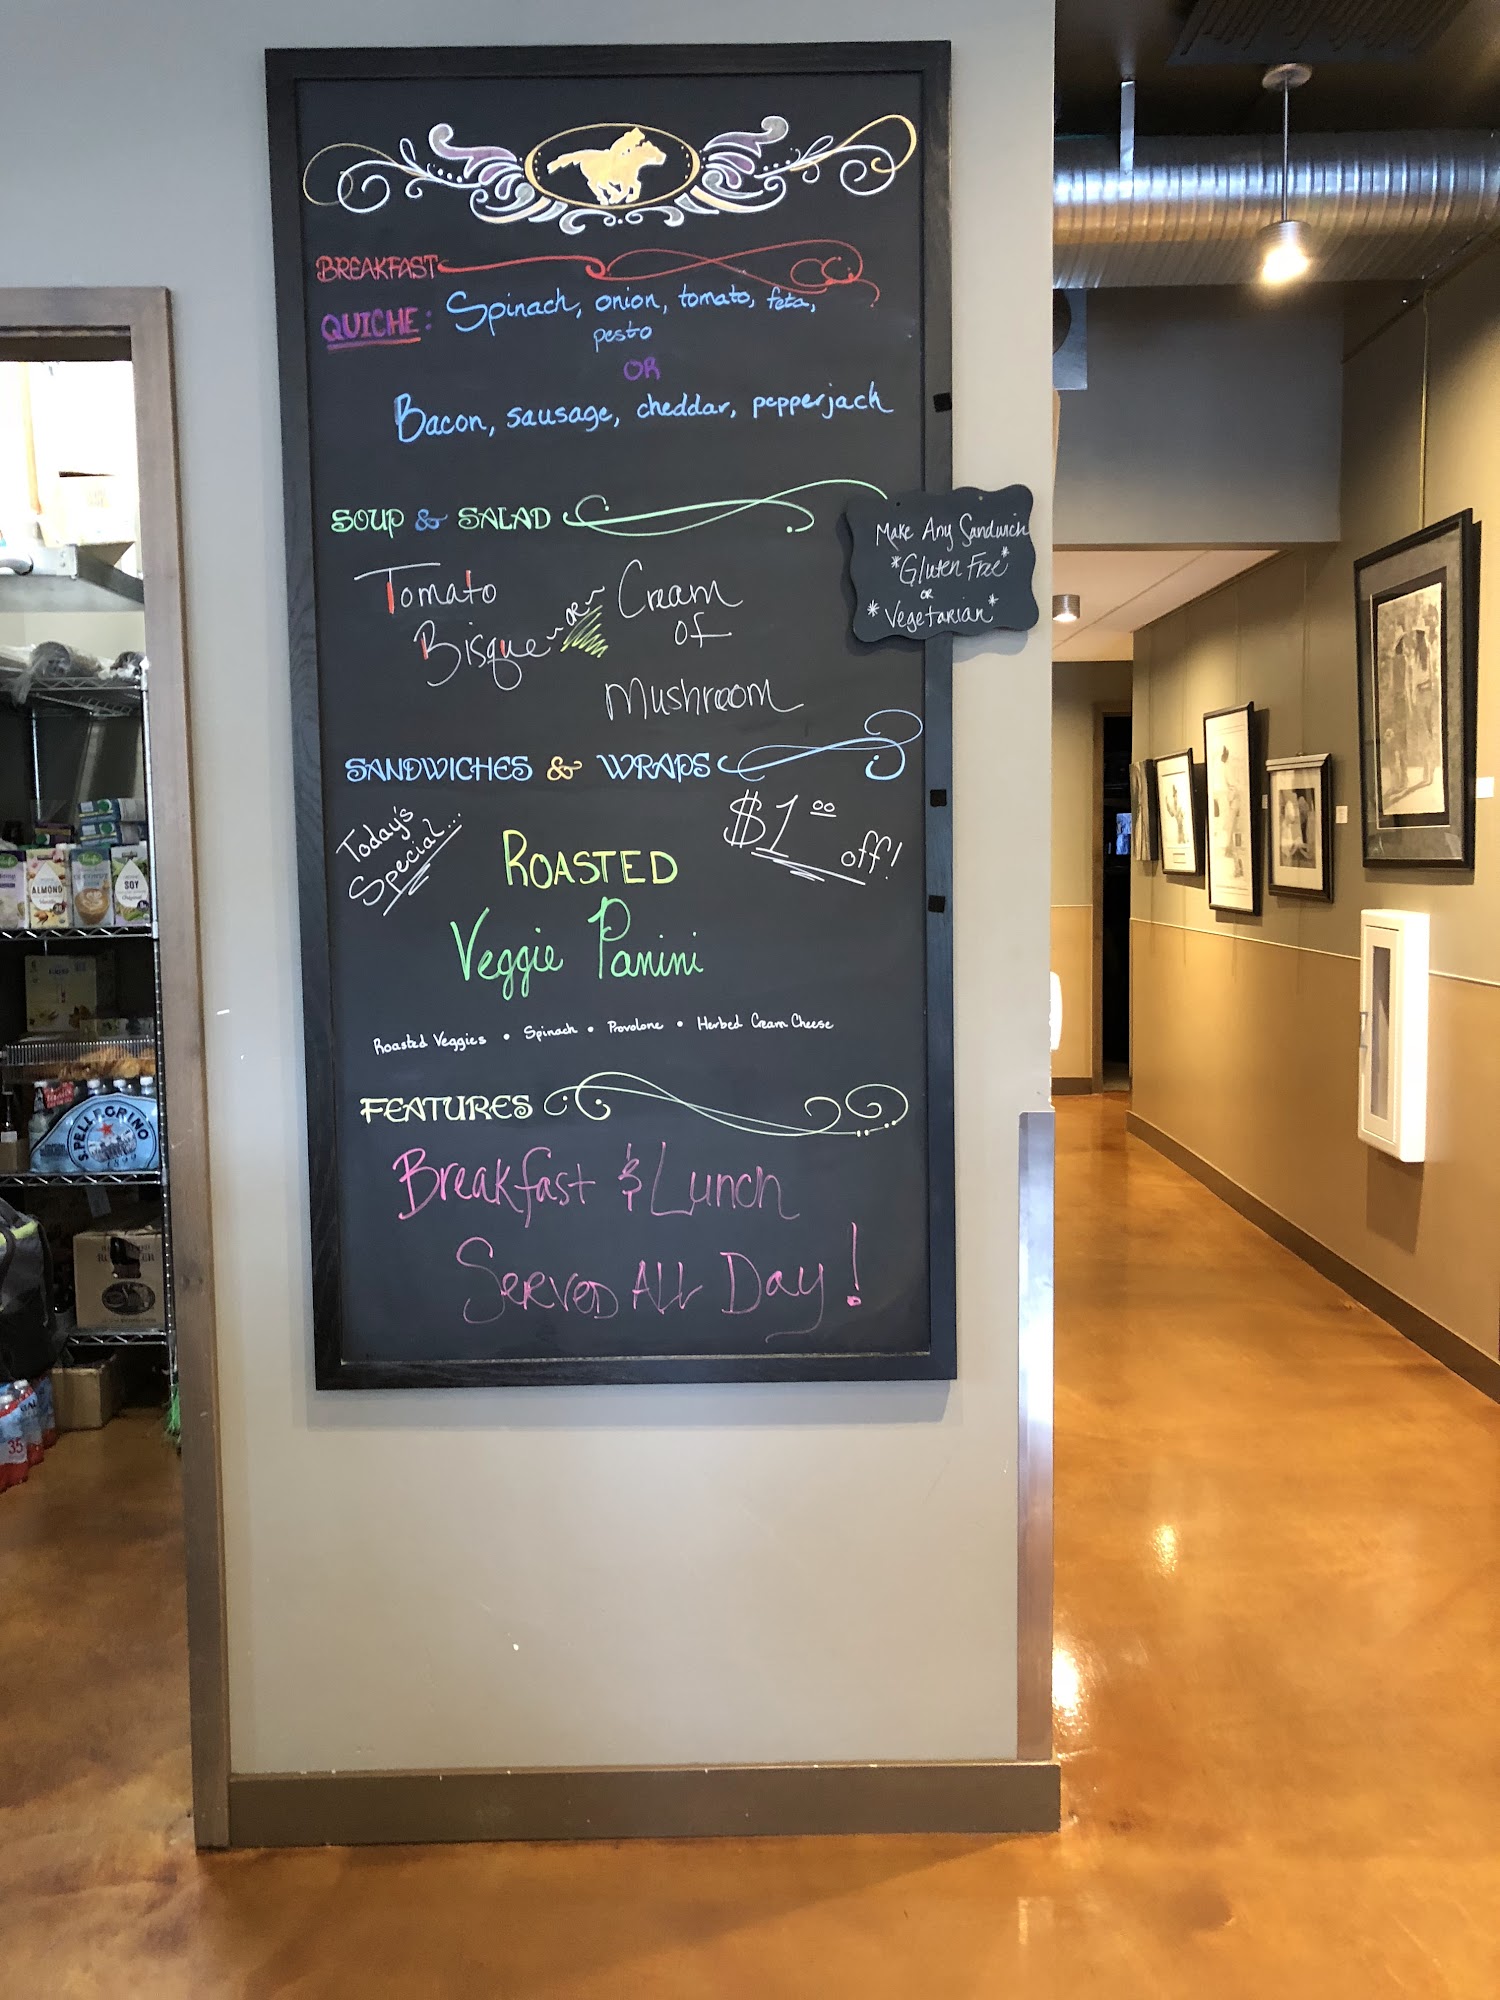 BREAKFAST
QUICHE: Spinach, onion, tomato, feta,
pesto
OR
Bacon, sausage, cheddar, pepperjack
SOUP & SALAD
Tomato
Bisque
~OR~
Cream
of
Mushroom
Make Any Sandwich
*Gluten Free*
or
*Vegetarian*
SANDWICHES & WRAPS
Today's
Special...
$1.00
off!
ROASTED
Veggie Panini
Roasted Veggies • Spinach • Provolone • Herbed Cream Cheese
FEATURES
Breakfast & Lunch
SERVED ALL Day!
ALMOND
SOY
S.PELLEGRINO
1899
35